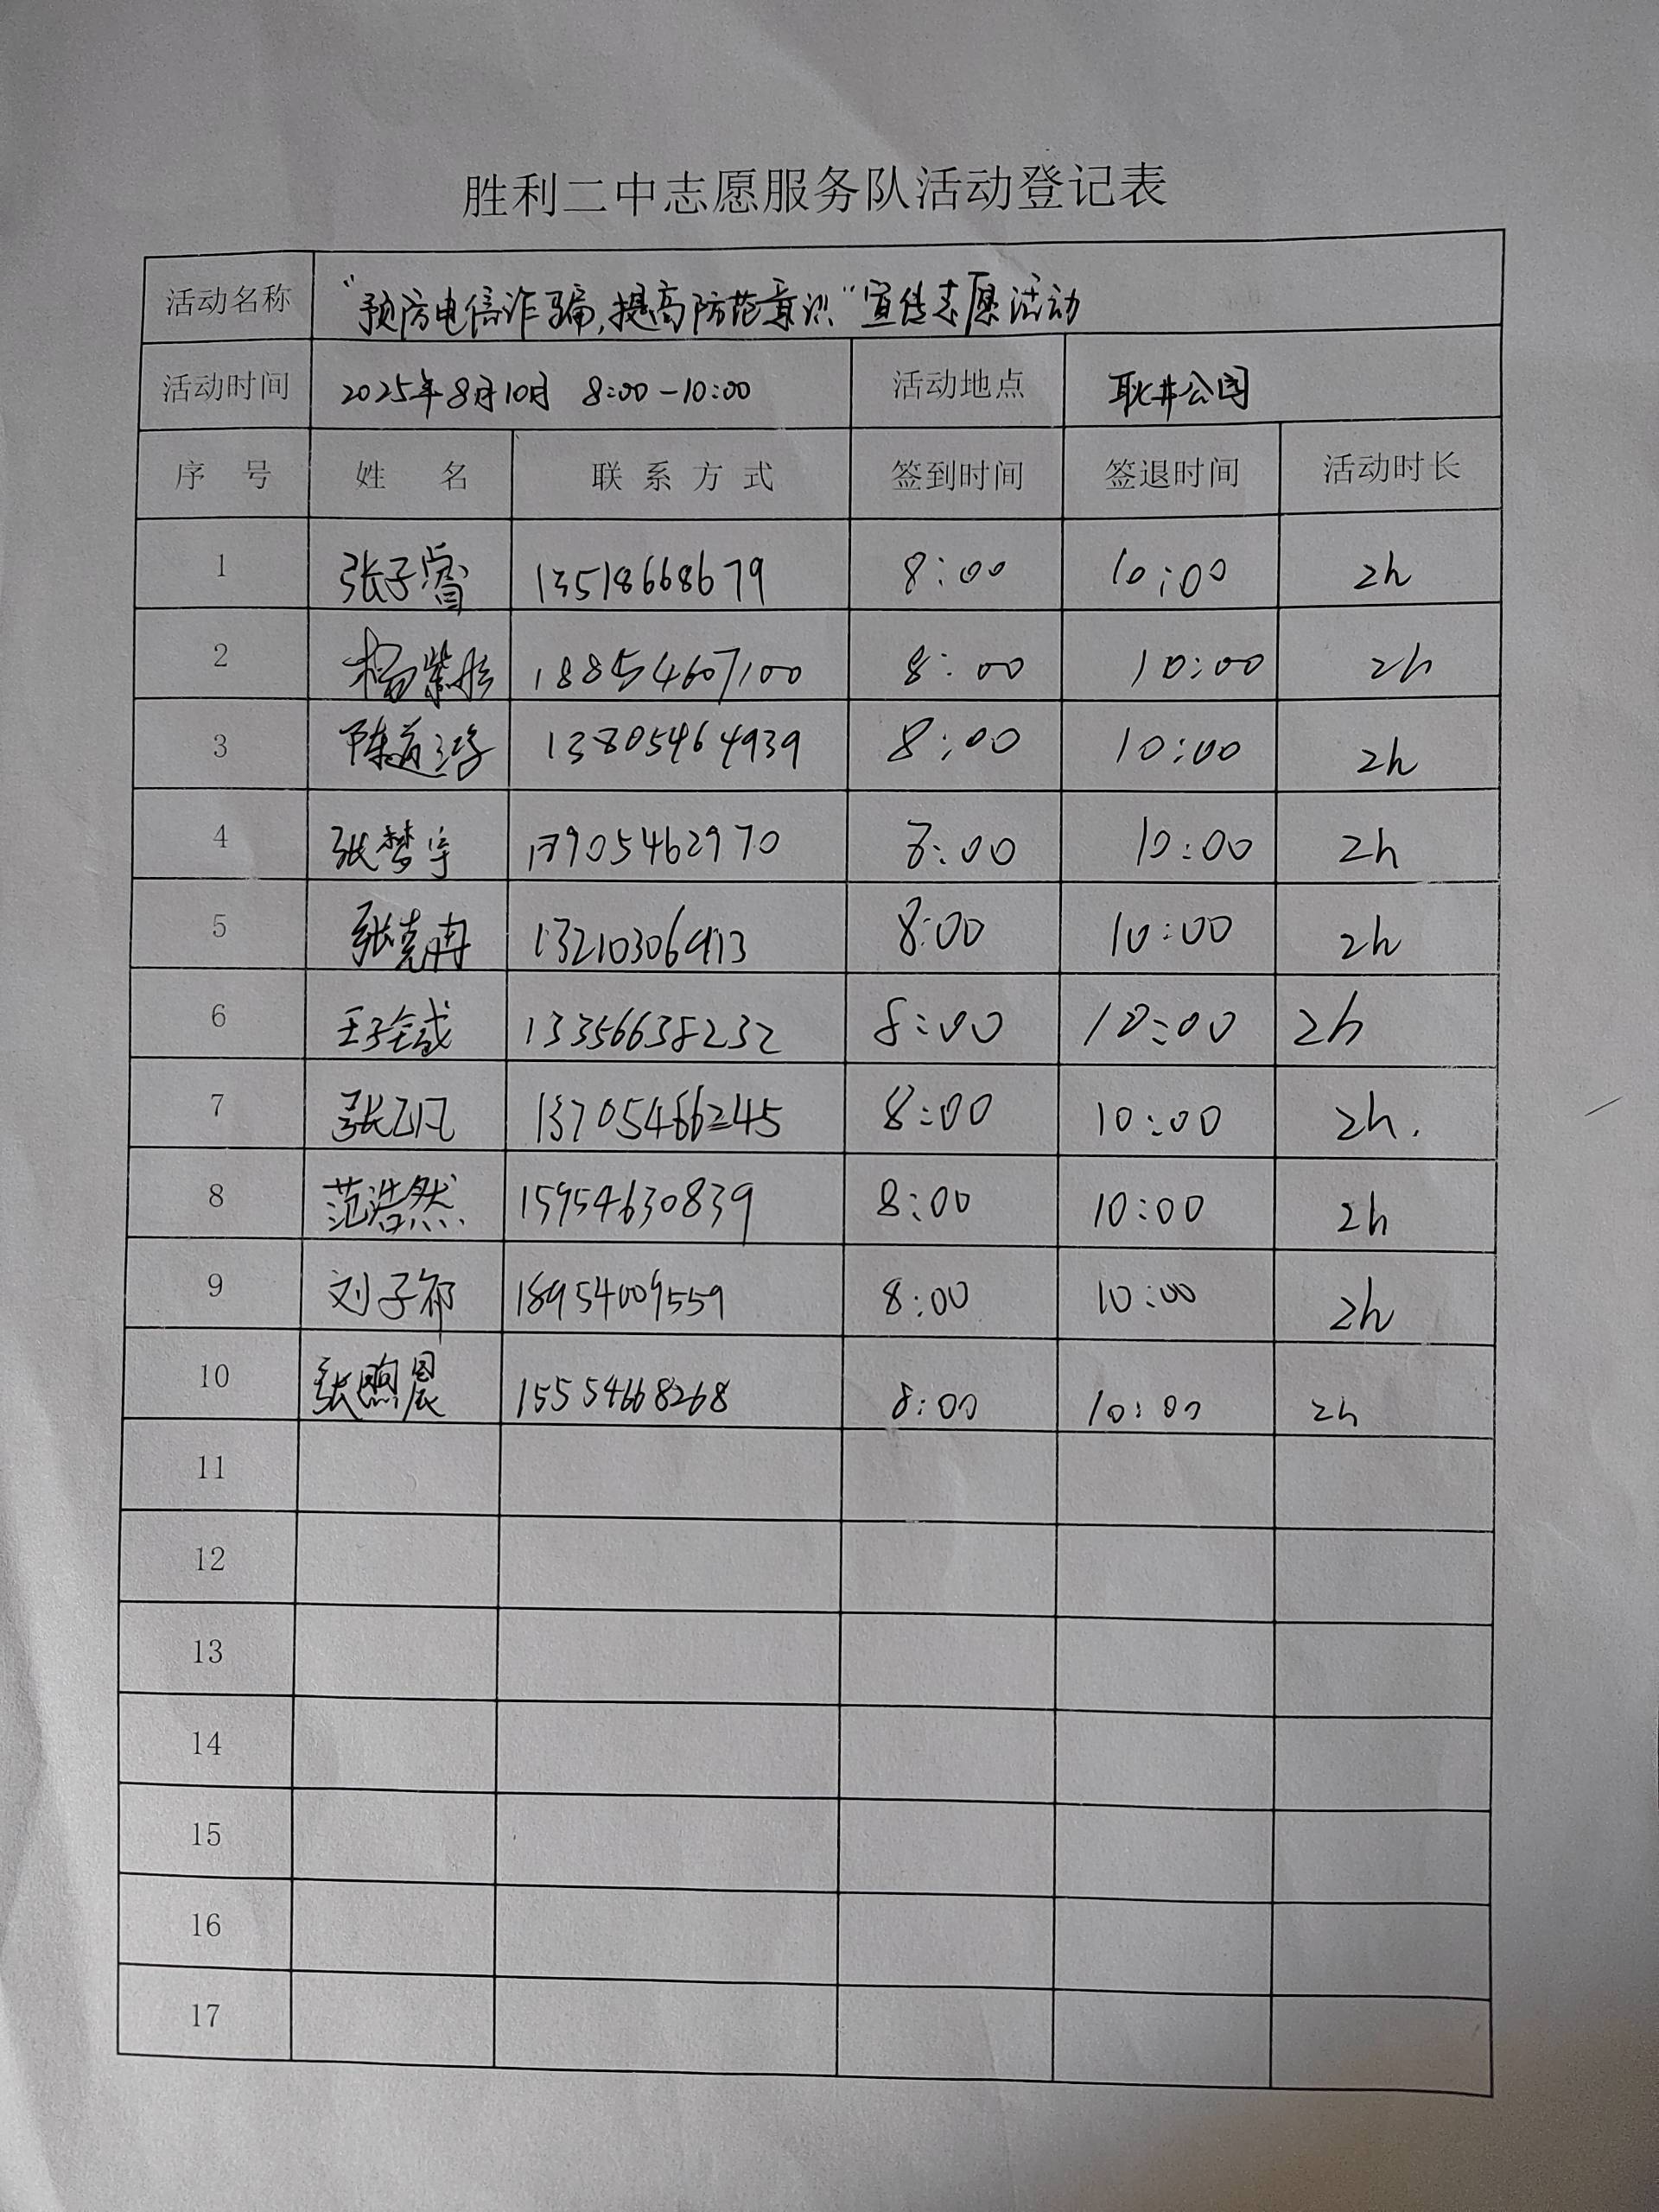 胜利二中志愿服务队活动登记表
活动名称 “预防电信诈骗,提高防范意识”宣传志愿活动
活动时间 2025年8月10日 8:00-10:00 活动地点 耿井公园
序号 姓名 联系方式 签到时间 签退时间 活动时长
1 张子睿 13518668679 8:00 10:00 2h
2 杨紫彤 18854607100 8:00 10:00 2h
3 13805464939 8:00 10:00 2h
4 张梦宇 8:00 10:00 2h
5 张尧冉 8:00 10:00 2h
6 王子铖 13356638232 8:00 10:00 2h
7 13705466245 8:00 10:00 2h.
8 范浩然 15954630839 8:00 10:00 2h
9 刘子祁 18954009559 8:00 10:00 2h
10 张煦晨 15554668268 8:00 10:00 2h
11
12
13
14
15
16
17